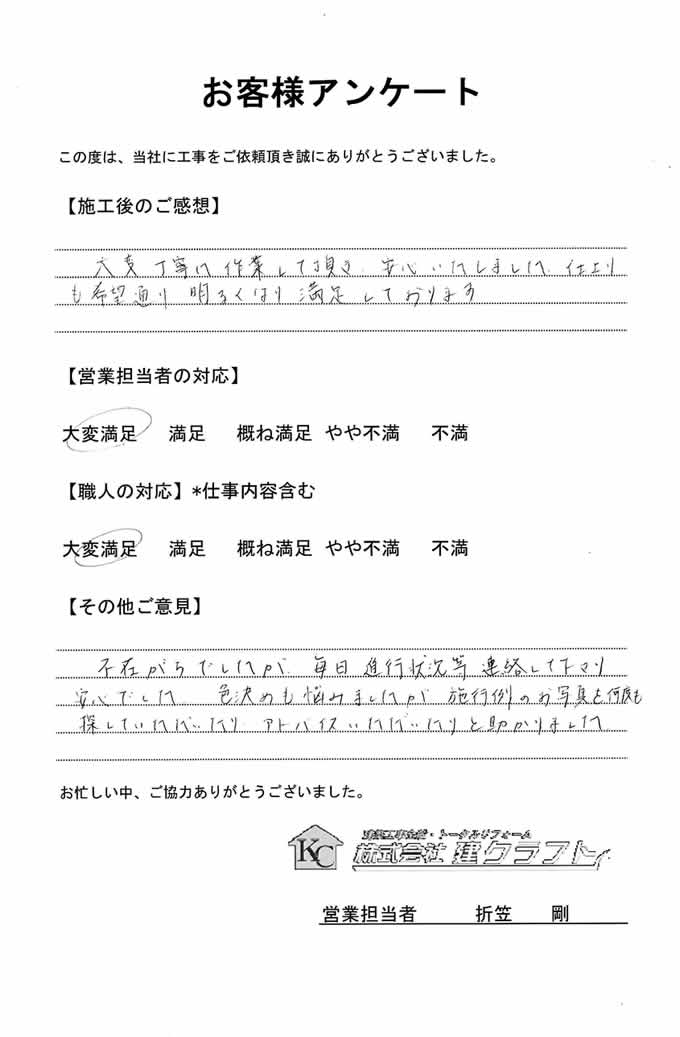 お客様アンケート
この度は、当社に工事をご依頼頂き誠にありがとうございました。
【施工後のご感想】
大変丁寧に作業して頂き、安心いたしました。仕上り
も希望通り明るくなり満足しております
【営業担当者の対応】
大変満足 満足 概ね満足 やや不満 不満
【職人の対応】*仕事内容含む
大変満足 満足 概ね満足 やや不満 不満
【その他ご意見】
不在がちでしたが、毎日進行状況等連絡して下さり
安心でした。色決めも悩みましたが施行例のお写真を何度も
探していただいたり、アドバイスいただいたりと助かりました
お忙しい中、ご協力ありがとうございました。
KC
建築工事全般・トータルリフォーム
株式会社 建クラフト
営業担当者 折笠 剛